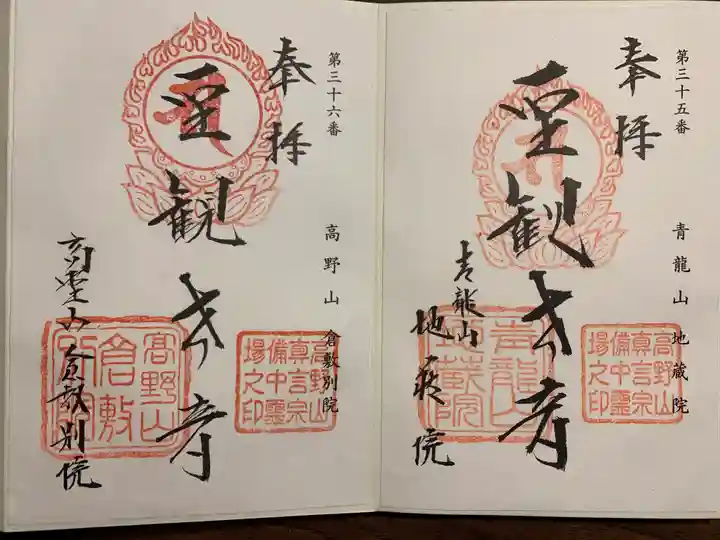 第三十五番
青龍山 地蔵院
奉拝
聖観世音
青龍山
地蔵院
高野山
真言宗
備中霊
場之印
青龍山
地蔵院
第三十六番
高野山 倉敷別院
奉拝
聖観世音
高野山倉敷別院
高野山
真言宗
備中霊
場之印
高野山
倉敷
別院